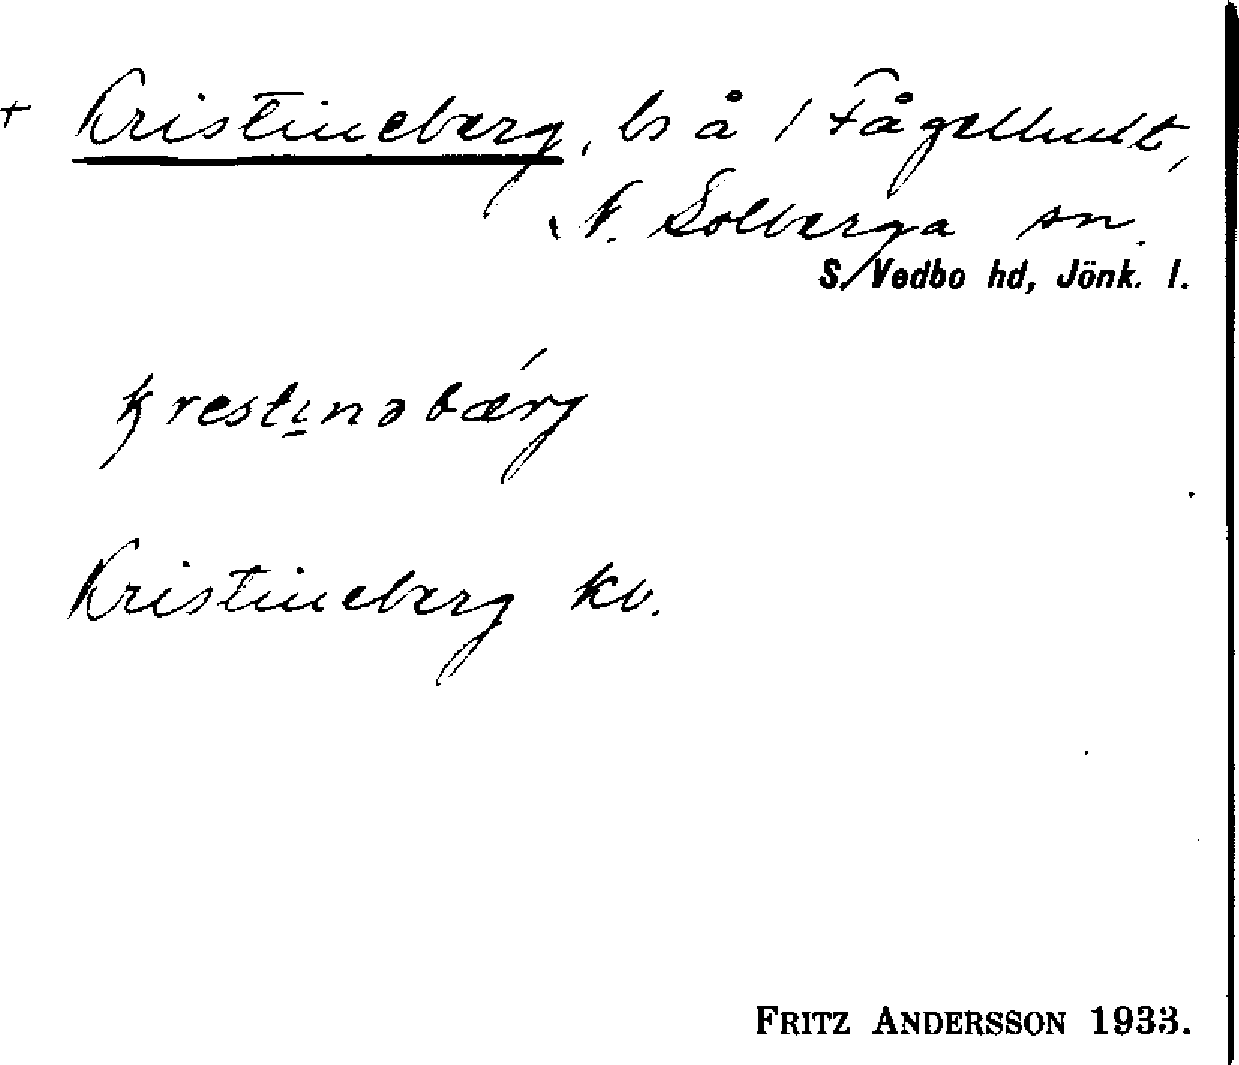 + Kristineberg, bs å 1 Fågelhult,
N. Solberga sn.
S. Vedbo hd, Jönk. l.
krestɩnəbærg
Kristineberg kv.
FRITZ ANDERSSON 1933.